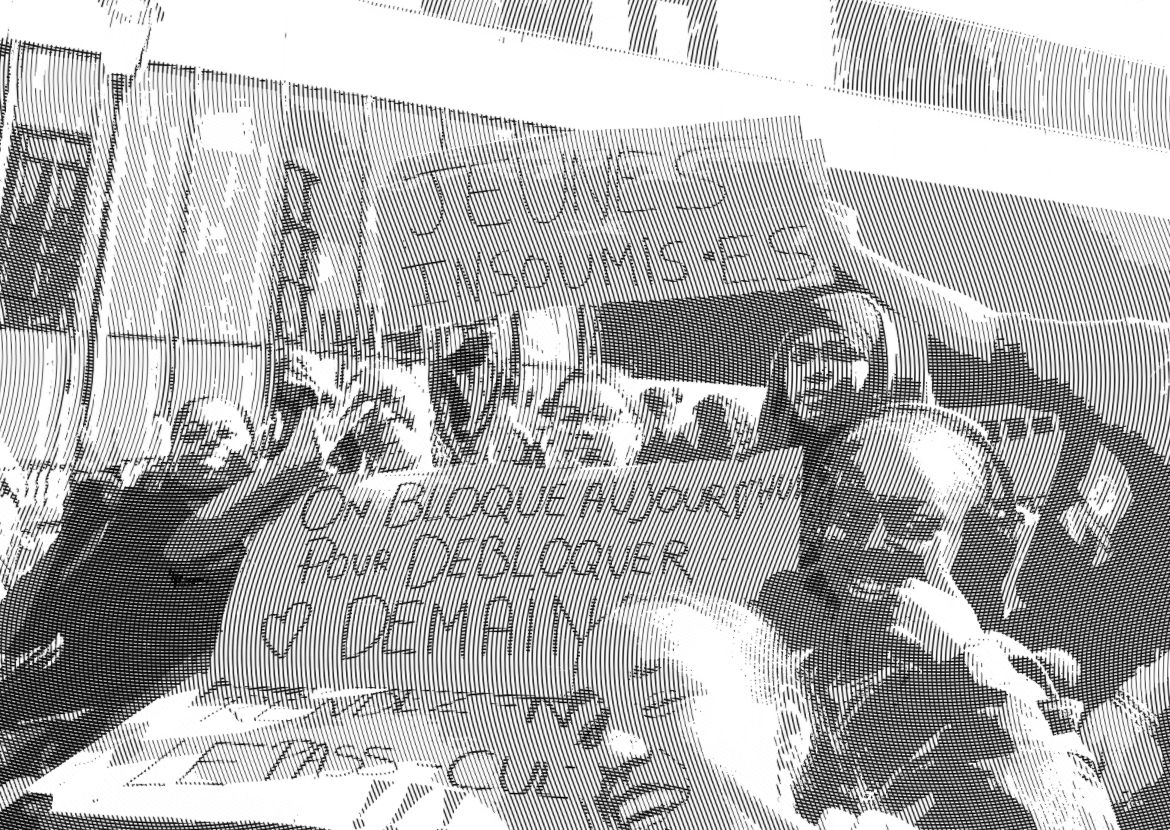 JEUNES
INSOUMIS•ES
ON BLOQUE AUJOURD'HUI
POUR DEBLOQUER
♡ DEMAIN
LE PASS CUL